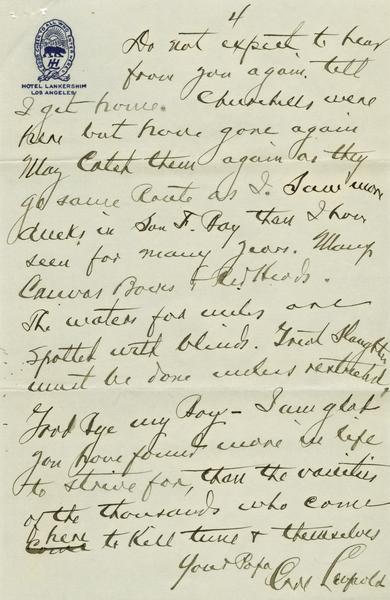 4
HOTEL LANKERSHIM
LOS ANGELES
Do not expect to hear
from you again till
I get home. Churchills were
here but have gone again
May Catch them again as they
go same Route as I. Saw more
ducks in San F. Bay than I have
seen for many years. Many
Canvas Backs & Red Heads.
The waters for miles are
spotted with blinds. Great Slaughter
must be done unless restricted,
Good Bye my Boy – I am glad
you have found more in life
to strive for, than the vanities
of the thousands who come
here
come to Kill time & themselves
Your Papa Carl Leopold